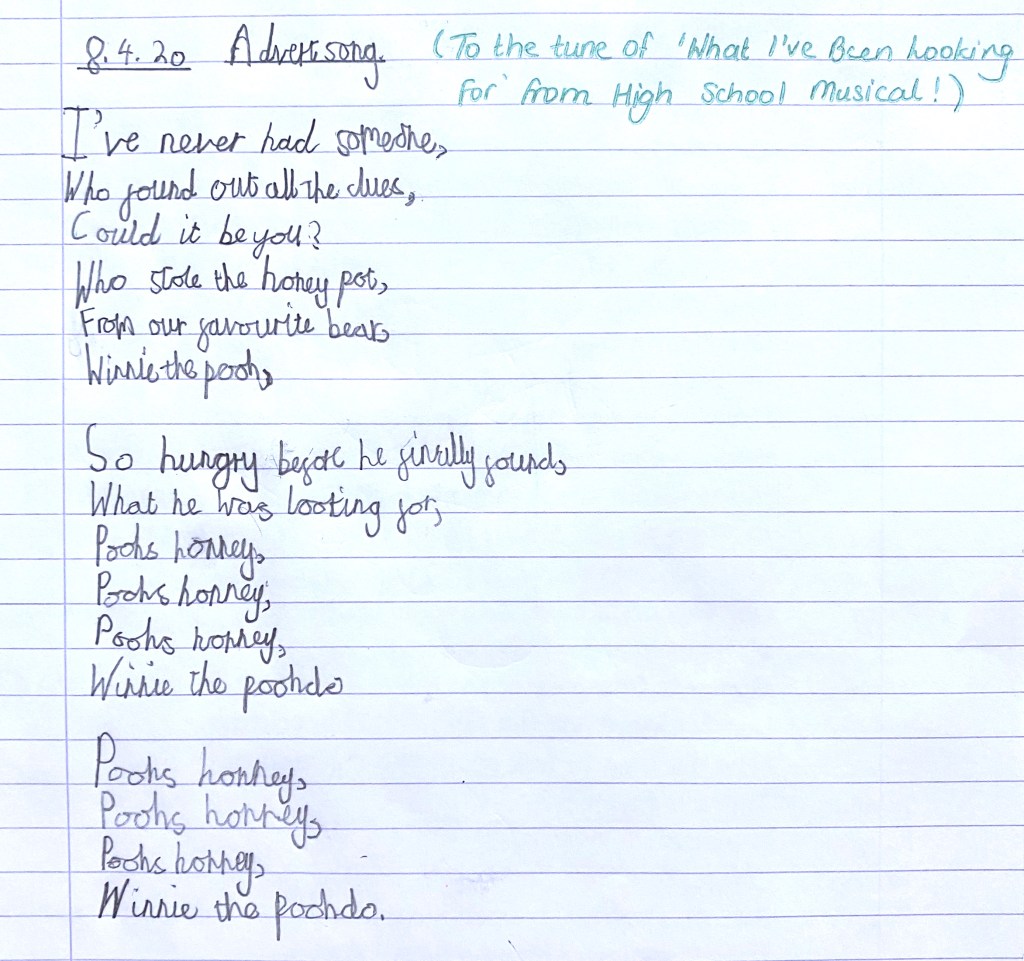 8.4.20 Advertsong. (To the tune of 'What I've Been Looking
For' from High School Musical!)
I've never had someone,
Who found out all the clues,
Could it be you?
Who stole the honey pot,
From our favourite bear,
Winnie the pooh,
So hungry before he finally found,
What he was looting for,
Poohs honney,
Poohs honney,
Poohs honney,
Winnie the poohdo
Poohs honney,
Poohs honney,
Poohs honney,
Winnie the poohdo.